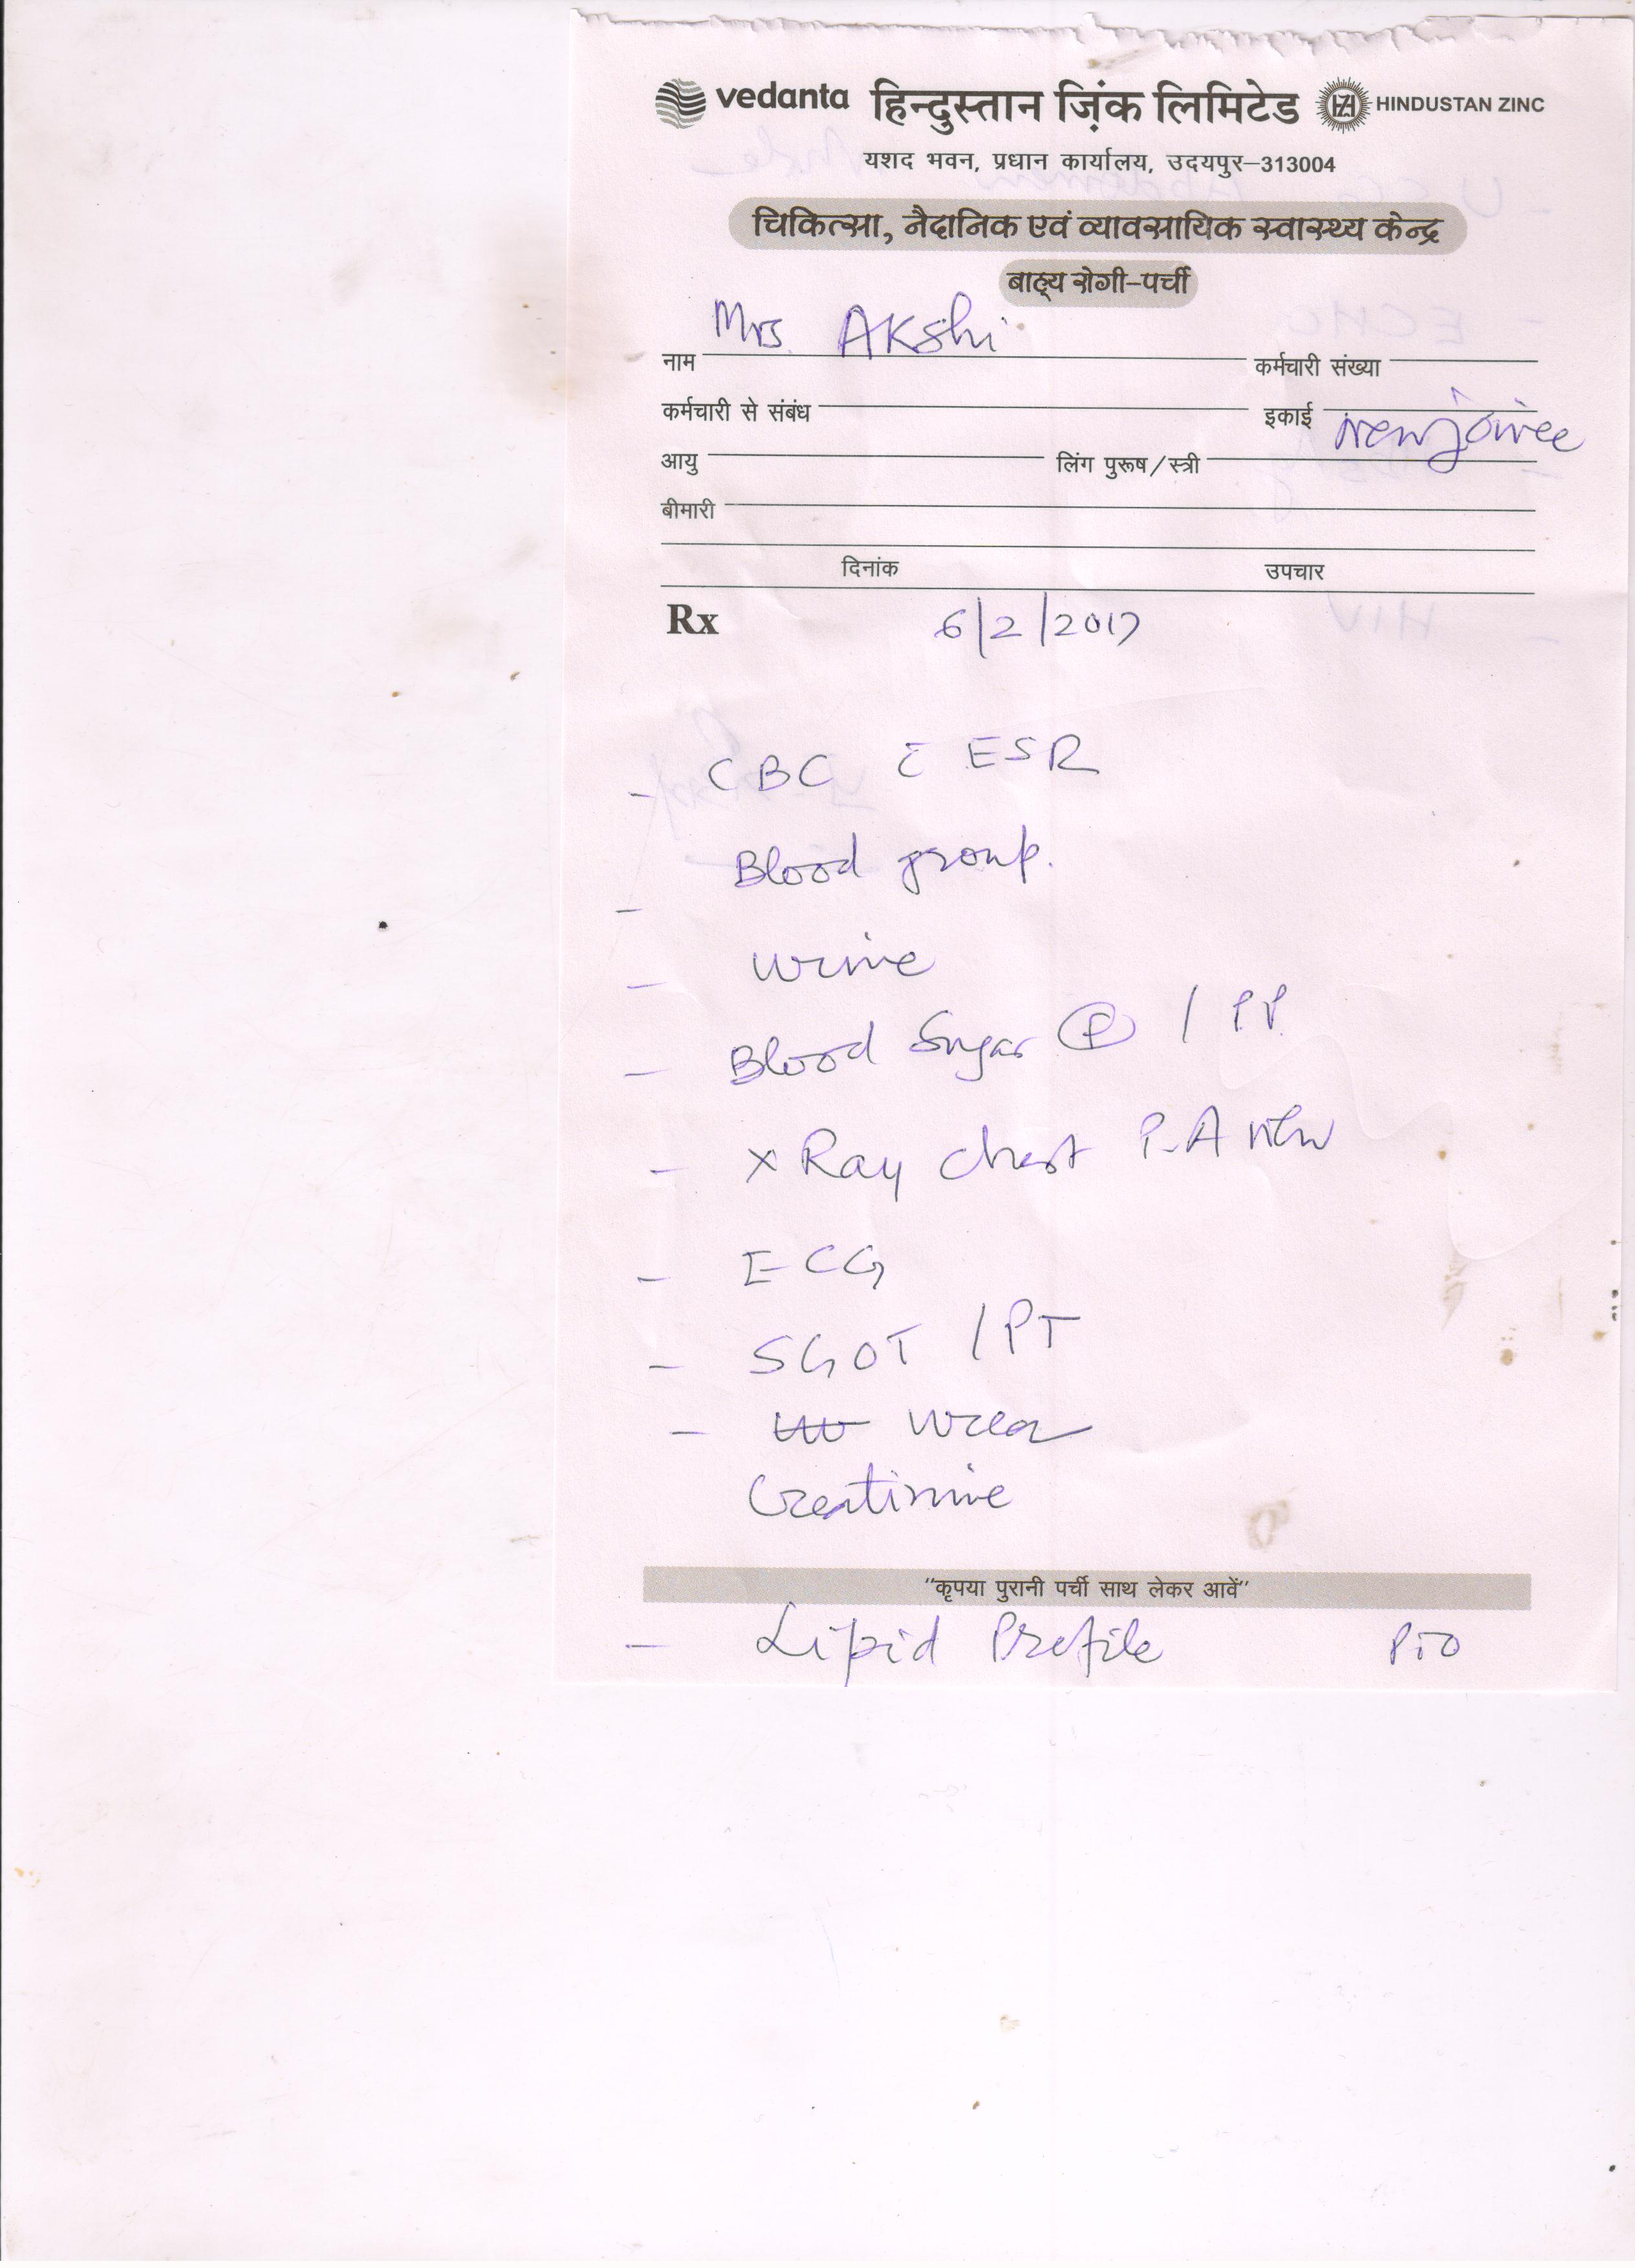 vedanta हिन्दुस्तान ज़िंक लिमिटेड HZL HINDUSTAN ZINC
यशद भवन, प्रधान कार्यालय, उदयपुर–313004
चिकित्सा, नैदानिक एवं व्यावसायिक स्वास्थ्य केन्द्र
बाह्य रोगी-पर्ची
नाम Mrs. AKshi कर्मचारी संख्या
कर्मचारी से संबंध इकाई New joinee
आयु लिंग पुरूष/स्त्री
बीमारी
दिनांक उपचार
Rx 6/2/2017
- CBC c̄ ESR
- Blood group.
- Urine
- Blood Sugar Ⓕ / PP
- X Ray chest P-A view
- ECG
- SGOT / PT
- Urea
Creatinine
"कृपया पुरानी पर्ची साथ लेकर आवें"
- Lipid Profile P.T.O